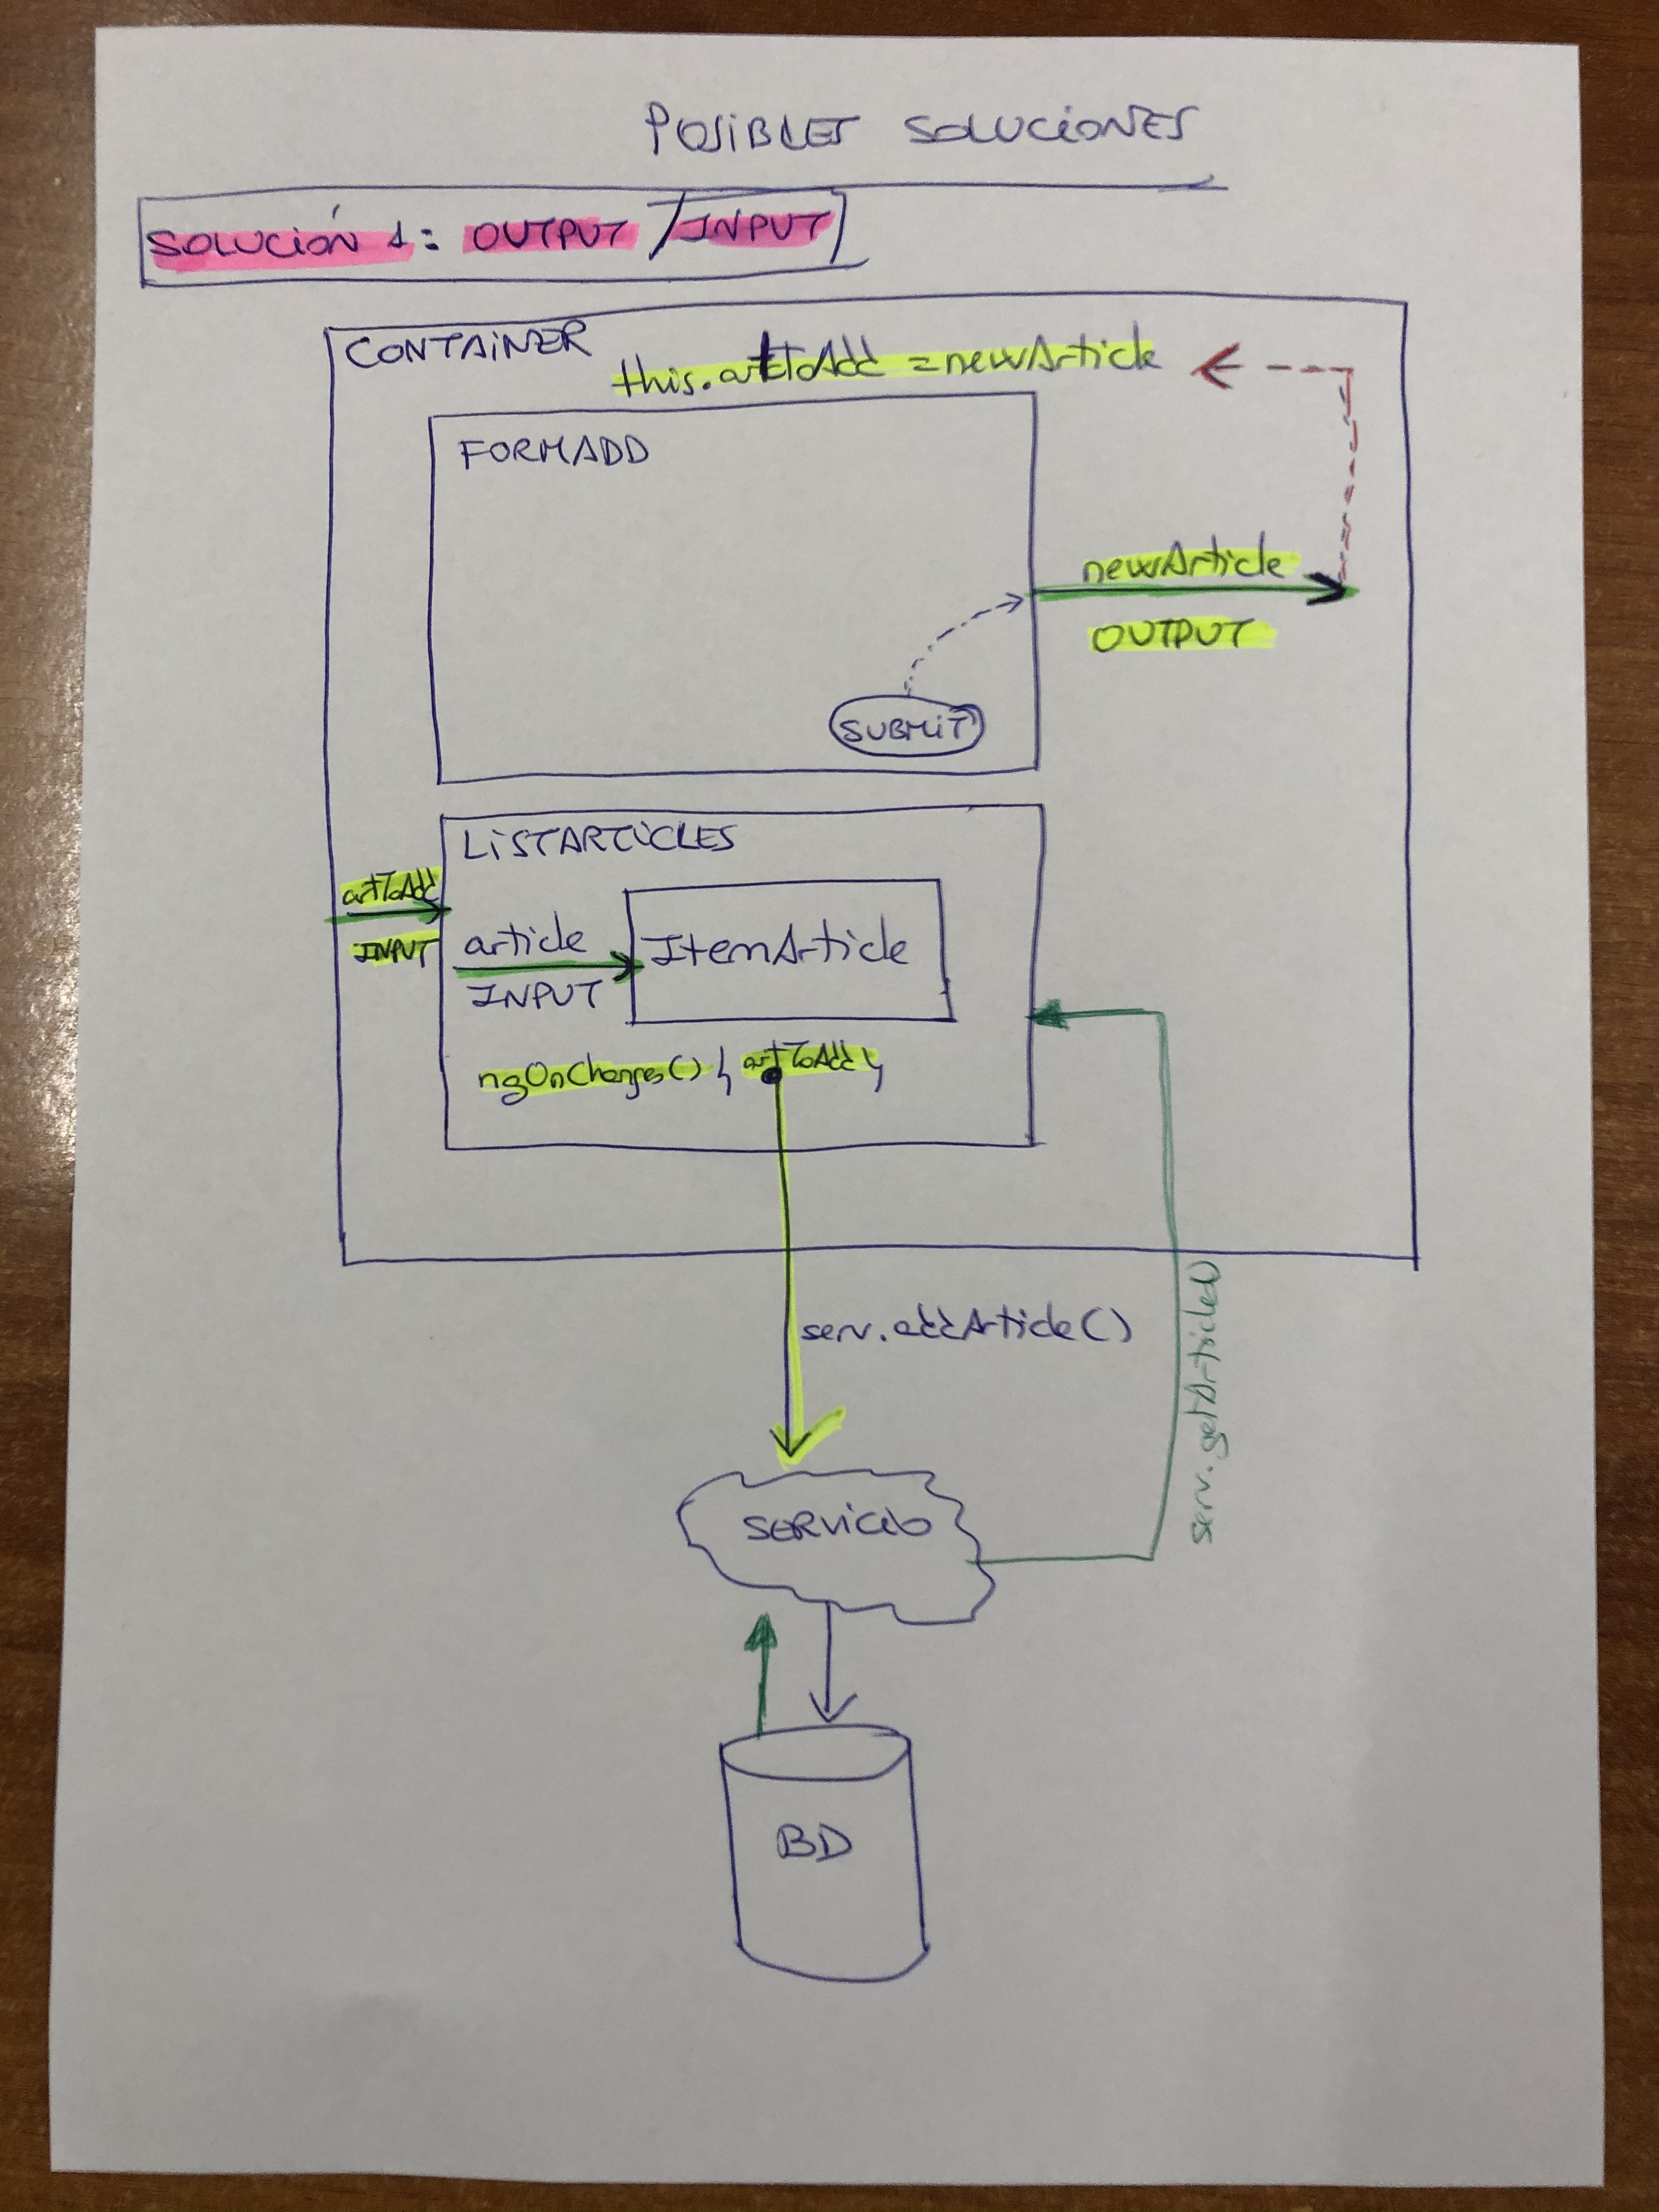 POSIBLES SOLUCIONES
SOLUCIÓN 1: OUTPUT / INPUT
CONTAINER
this.artToAdd = newArticle
FORMADD
newArticle
OUTPUT
SUBMIT
LISTARTICLES
artToAdd
INPUT
article
INPUT
ItemArticle
ngOnChanges() { artToAdd }
serv.addArticle()
serv.getArticles()
SERVICIO
BD